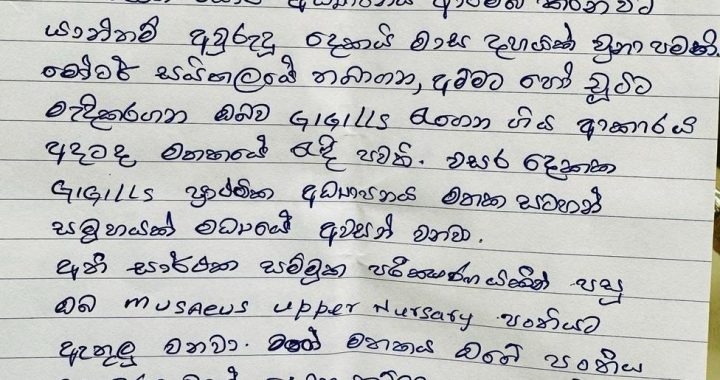 යාන්තම් අවුරුදු දෙකයි මාස දහයක් වුනා පමණි.
මෝටර් සයිකලයේ තබාගන, අම්මට හෝ චූටිට
මැදිකරගන ඔබව GIGILLS රැගෙන ගිය ආකාරය
අදටද මතකයේ රැදී පවතී. වසර දෙකක
GIGILLS ප්‍රාථමික අධ්‍යාපනය මතක සටහන්
සමුහයක් මධ්‍යයේ අවසන් වනවා.
අති සාර්ථක සම්මුක පරීක්ෂණයකින් පසු
ඔබ musaeus upper Nursary පංතියට
ඇතුළු වනවා. මතකය ඔබේ පංතිය